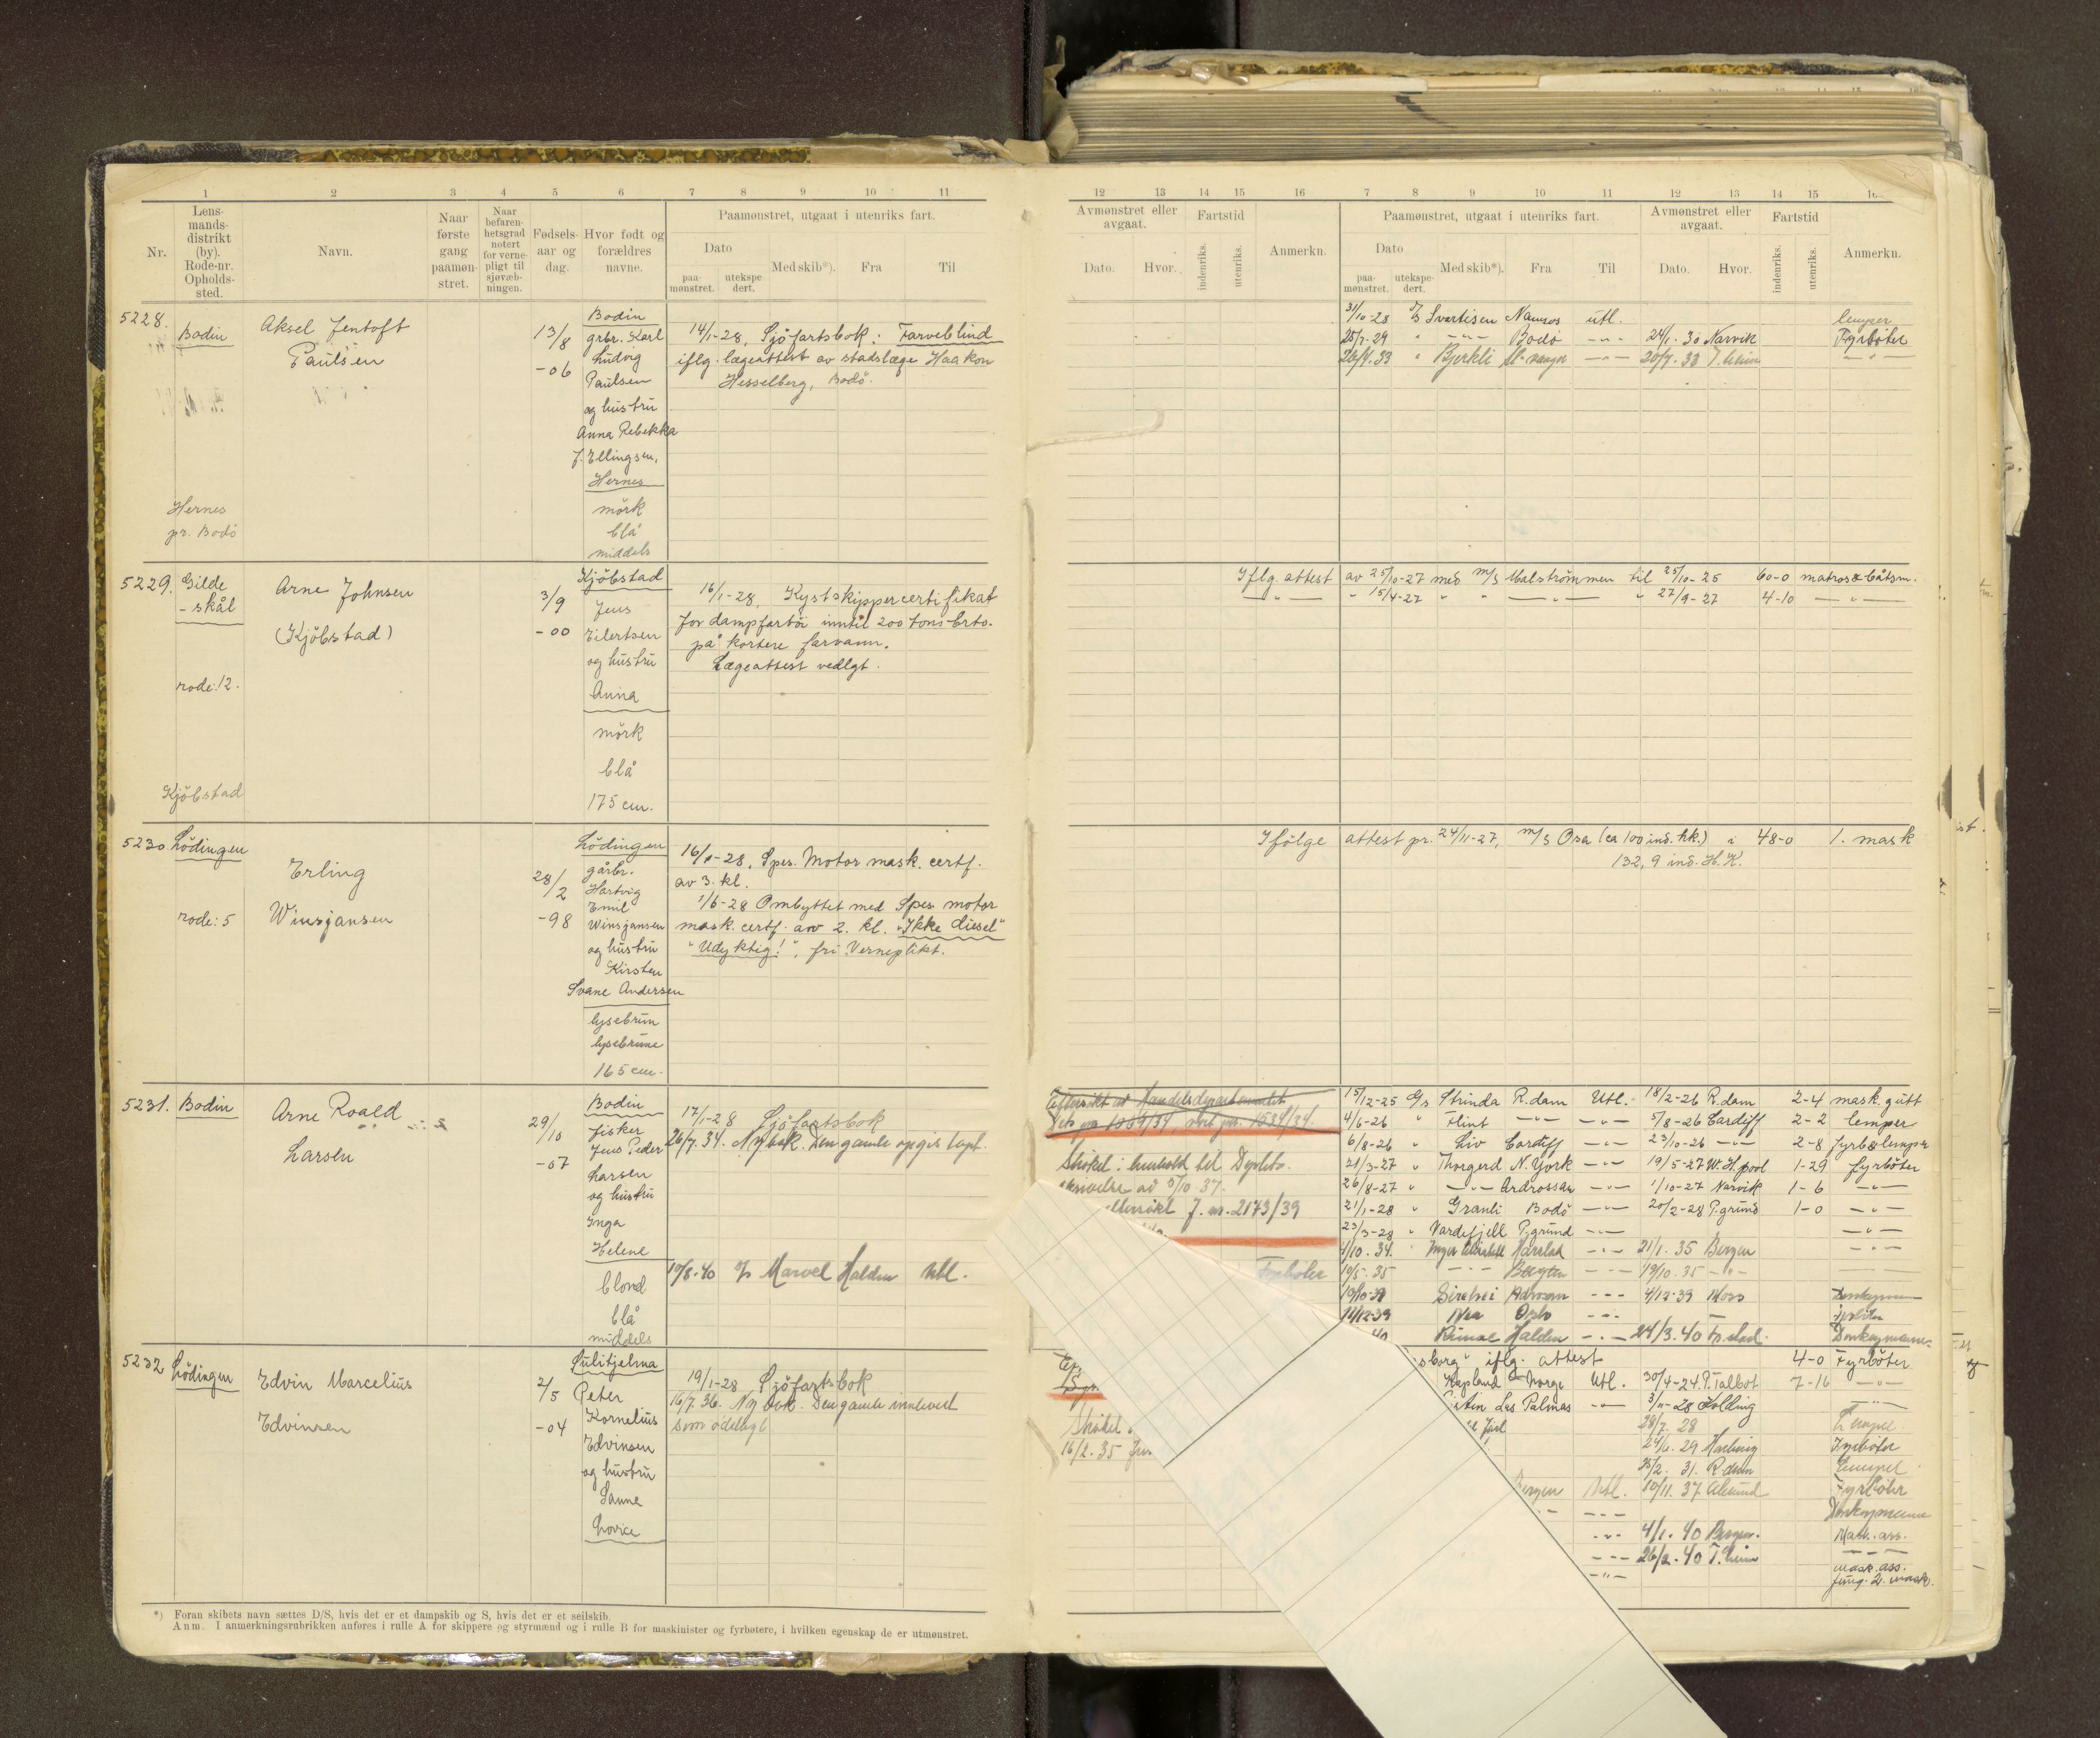 1 2 3 4 5 6 7 8 9 10 11
Nr.
Lens-
mands-
distrikt
(by).
Rode-nr.
Opholds-
sted.
Navn.
Naar
første
gang
paamøn-
stret.
Naar
befaren-
hetsgrad
notert
for verne-
pligt til
sjøvæb-
ningen.
Fødsels-
aar og
dag.
Hvor født og
forældres
navne.
Paamønstret, utgaat i utenriks fart.
Dato
paa-
mønstret.
utekspe
dert.
Med skib*).
Fra
Til
5228.
Bodin
Aksel Jentoft
Paulsen
13/8
-06
Bodin
grbr. Karl
Ludvig
Paulsen
og hustru
Anna Rebekka
f. Ellingsen,
Hernes
mörk
blå
middels
14/1-28, Sjöfartsbok: Farveblind
iflg. lægeattest av stadslæge Haakon
Hesselberg, Bodö.
Hernes
pr. Bodö
5229.
Gilde
- skål
Arne Johnsen
(Kjöbstad)
rode: 12.
Kjöbstad
3/9
-00
Kjöbstad
Jens
Eilertsen
og hustru
Anna
mörk
blå
175 cm.
16/1-28, Kystskippercertifikat
for dampfartöi inntil 200 tons brto.
på kortere farvann.
Lægeattest vedlgt.
5230
Lödingen
Erling
Winsjansen
rode: 5
28/2
-98
Lödingen
gårbr.
Hartvig
Emil
Winsjansen
og hustru
Kirsten
Svane Andersen
lysebrun
lysebrune
165 cm.
16/1-28, Spes. Motor mask. certf.
av 3. kl.
1/6-28 Ombyttet med Spes motor
mask. certf. av 2. kl. "Ikke diesel"
"Udyktig!", fri Verneplikt.
5231.
Bodin
Arne Roald
Larsen
29/10
-07
Bodin
fisker
Jens Peder
Larsen
og hustru
Inga
Helene
blond
blå
middels
17/1-28 Sjöfartsbok
26/7. 34. Ny bok. Den gamle opgis tapt.
19/8-40 D/s Marvel Halden Utl.
5232
Lödingen
Edvin Marcelius
Edvinsen
2/5
-04
Sulitjelma
Peter
Kornelius
Edvinsen
og hustru
Sanna
Lovice
19/1-28 Sjöfartsbok
16/7. 36. Ny bok. Den gamle innlevert
som ödelagt
*) Foran skibets navn sættes D/S, hvis det er et dampskib og S, hvis det er et seilskib.
Anm. I anmerkningsrubrikken anføres i rulle A for skippere og styrmænd og i rulle B for maskinister og fyrbøtere, i hvilken egenskap de er utmønstret.
12 13 14 15 16 7 8 9 10 11 12 13 14 15 16
Avmønstret eller
avgaat.
Dato.
Hvor.
Fartstid
indenriks.
utenriks.
Anmerkn.
Paamønstret, utgaat i utenriks fart.
Dato
paa-
mønstret.
utekspe-
dert.
Med skib*).
Fra
Til
Avmønstret eller
avgaat.
Dato.
Hvor.
Fartstid
indenriks.
utenriks.
Anmerkn.
31/10-28 D/s Svartisen Namsos utl. lemper
25/7-29 " -"- Bodö -"- 24/1. 30 Narvik Fyrböter
" Bjerkli -"- 20/7. 33 T.heim -"-
Iflg. attest av 25/10-27 med m/s Malströmmen til 25/10-25 60-0 matros & båtsm.
-"- " 15/4-27 " " -"- " 27/9-27 4-10 -"-
Ifölge attest pr. 24/11-27, m/s Osa (ca 100 ind. hk.) i 48-0 1. mask
132,9 ind. H.K.
Eftersökt av Handelsdepartementet
Slökt i henhold til Dptets.
skrivelse av 5/10 37.
ettersökt J. nr. 2173/39
Fyrböter
15/12-25 D/s Strinda R.dam Utl. 18/2-26 R.dam 2-4 mask. gutt
4/6-26 " Flint -"- -"- 5/8-26 Cardiff 2-2 lemper
6/8-26 " Liv Cardiff -"- 23/10-26 -"- 2-8 fyrb & lemper
21/3-27 " Thorgerd N. York -"- 19/5-27 W. H. pool 1-29 fyrböter
26/8-27 " -"- Ardrossan -"- 1/10-27 Narvik 1-6 -"-
21/1-28 " Granli Bodö -"- 20/2-28 P.grund 1-0 -"-
23/3-28 " Vardefjell P.grund -"- -"-
4/10. 34. " Inger Elisabeth Harstad -"- 21/1. 35 Bergen -"-
19/5. 35 -"- Bergen -"- 19/10. 35 -"-
19/10-39 Sirehei -"- 4/12-39 Moss Donkeymann
11/12-39 Oslo -"- fyrböter
40 Rimac Halden -"- 24/3. 40 Donkeymann
sborg" iflg. attest 4-0 Fyrböter
Kapland Norge Utl. 30/4-24. P. Talbot 7-16 -"-
Las Palmas -"- 3/11-28 Kolding -"-
Jarl 28/7. 28 Lemper
24/6. 29 Fyrböter
25/2. 31. R.dam Lemper
Bergen Utl. 10/11. 37 Ålesund Fyrböter
-"- -"- Donkeymann
-"- 4/1. 40 Bergen. Mask. ass.
-"- 26/2. 40 T.heim -"-
-"- mask. ass.
fung. 2. mask.
16/2. 35